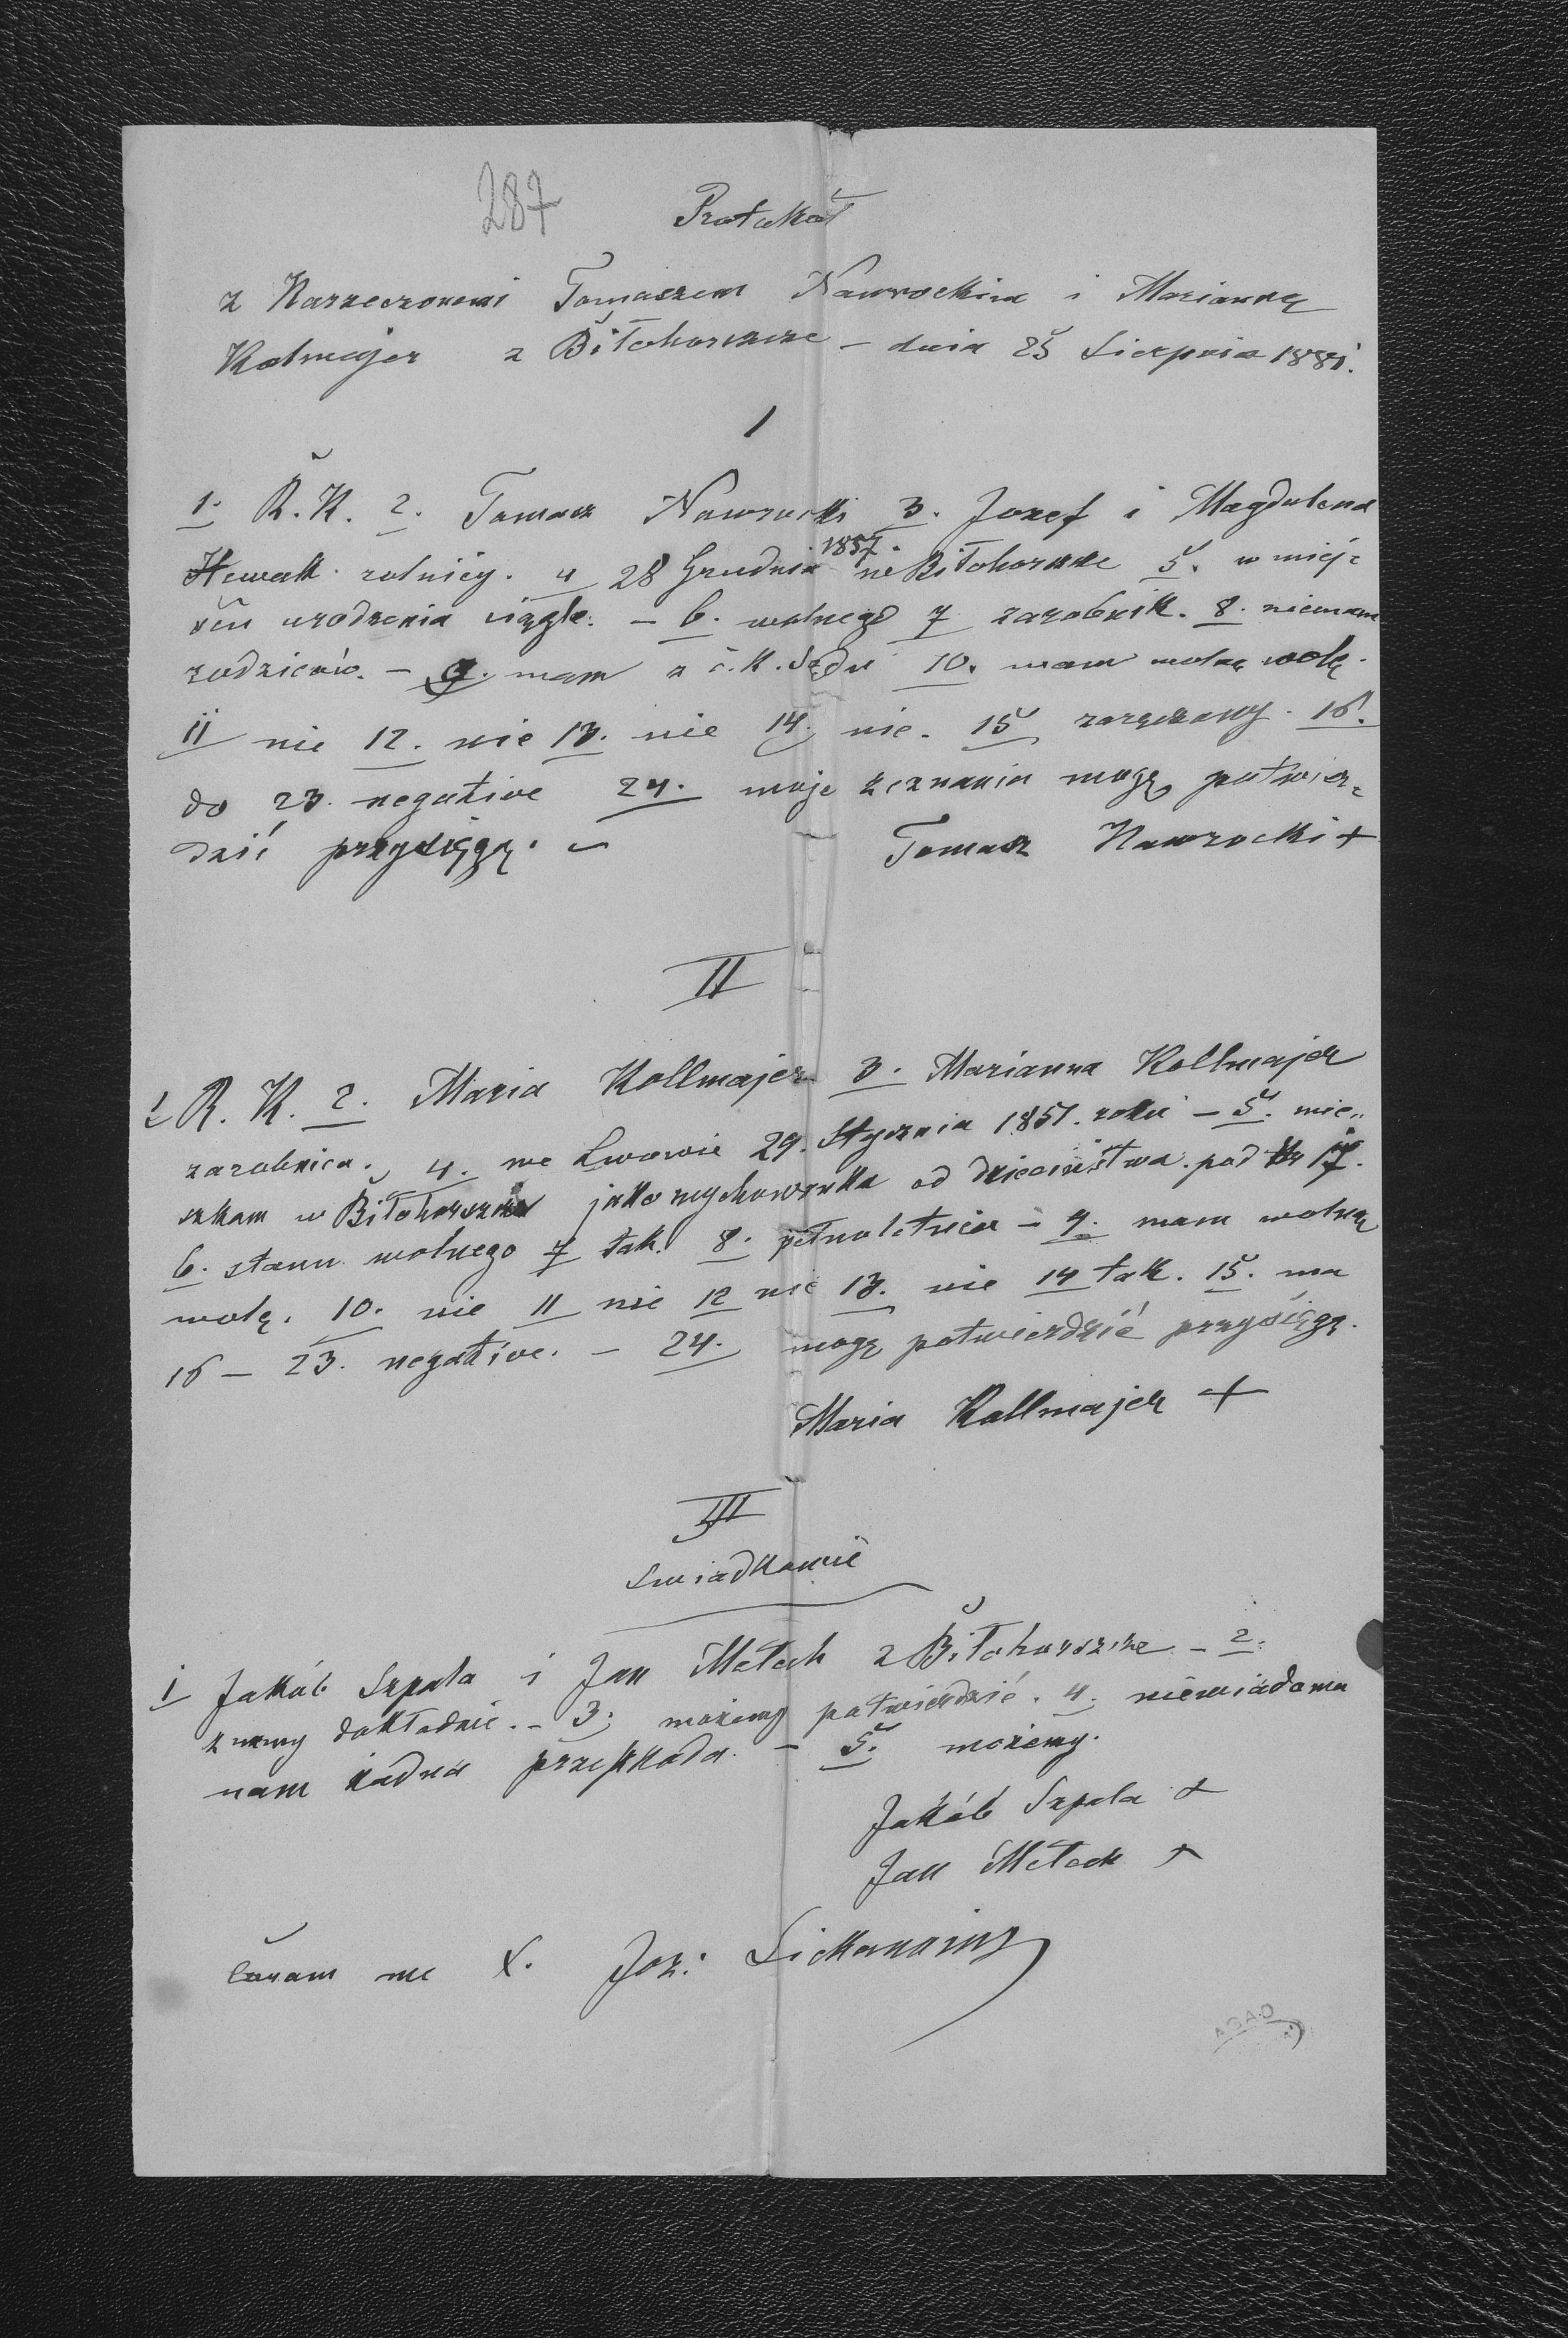 287
Protokoł
z Narzeczonemi Tomaszem Nawrockim i Marianną
Kolmajer z Biłohorszcze – dnia 25 Sierpnia 1881.
I
1. R. K. 2. Tomasz Nawrocki 3. Jozef i Magdalena
Hewak rolnicy. 4 28 Grudnia 1857. w Biłohorszcze 5. w miej-
scu urodzenia ciągle. – 6. wolnego 7 zarobnik. 8. niemam
rodziców. – 9. mam z c. k. Sądu 10. mam wolną wolę.
11 nie 12. nie 13. nie 14. nie. 15 zaręczony. 16.
do 23. negative 24. moje zeznania mogę potwier-
dzić przysięgą. –
Tomasz Nawrocki +
II
1 R. K. 2. Maria Kollmajer 3. Marianna Kollmajer
zarobnica. 4. we Lwowie 29. Stycznia 1851. roku – 5. mie-
szkam w Biłohorszcze jako wychowanka od dzieciństwa. pod Nr 17.
6. stanu wolnego 7 tak. 8. pełnoletnia – 9. mam wolną
wolę. 10. nie 11 nie 12 nie 13. nie 14 tak. 15. ma
16 – 23. negative. – 24. mogę potwierdzić przysięgą.
Maria Kollmajer +
III
Swiadkowie
1 Jakób Szpala i Jan Małech z Biłohorszcze – 2.
znamy dokładnie. – 3. możemy potwierdzić. 4. niewiadoma
nam żadna przeszkoda. – 5. możemy.
Jakób Szpala +
Jan Małech +
Coram me X. Joz:
AGAD